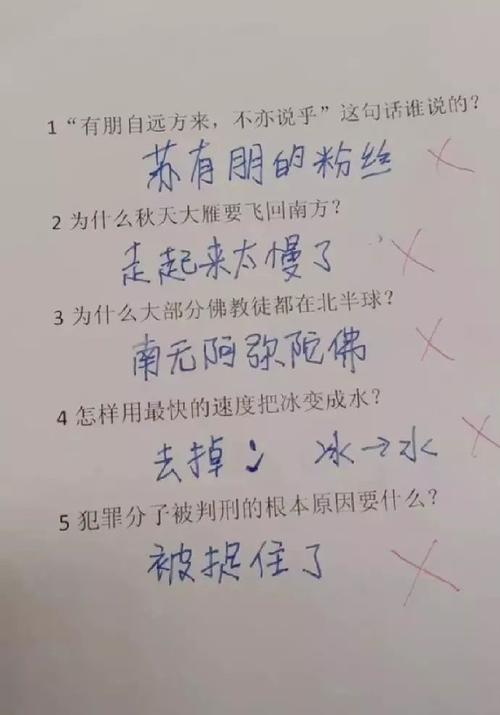 1“有朋自远方来，不亦说乎”这句话谁说的？
苏有朋的粉丝
2 为什么秋天大雁要飞回南方？
走起来太慢了
3 为什么大部分佛教徒都在北半球？
南无阿弥陀佛
4 怎样用最快的速度把冰变成水？
去掉冫 冰→水
5 犯罪分子被判刑的根本原因要什么？
被捉住了